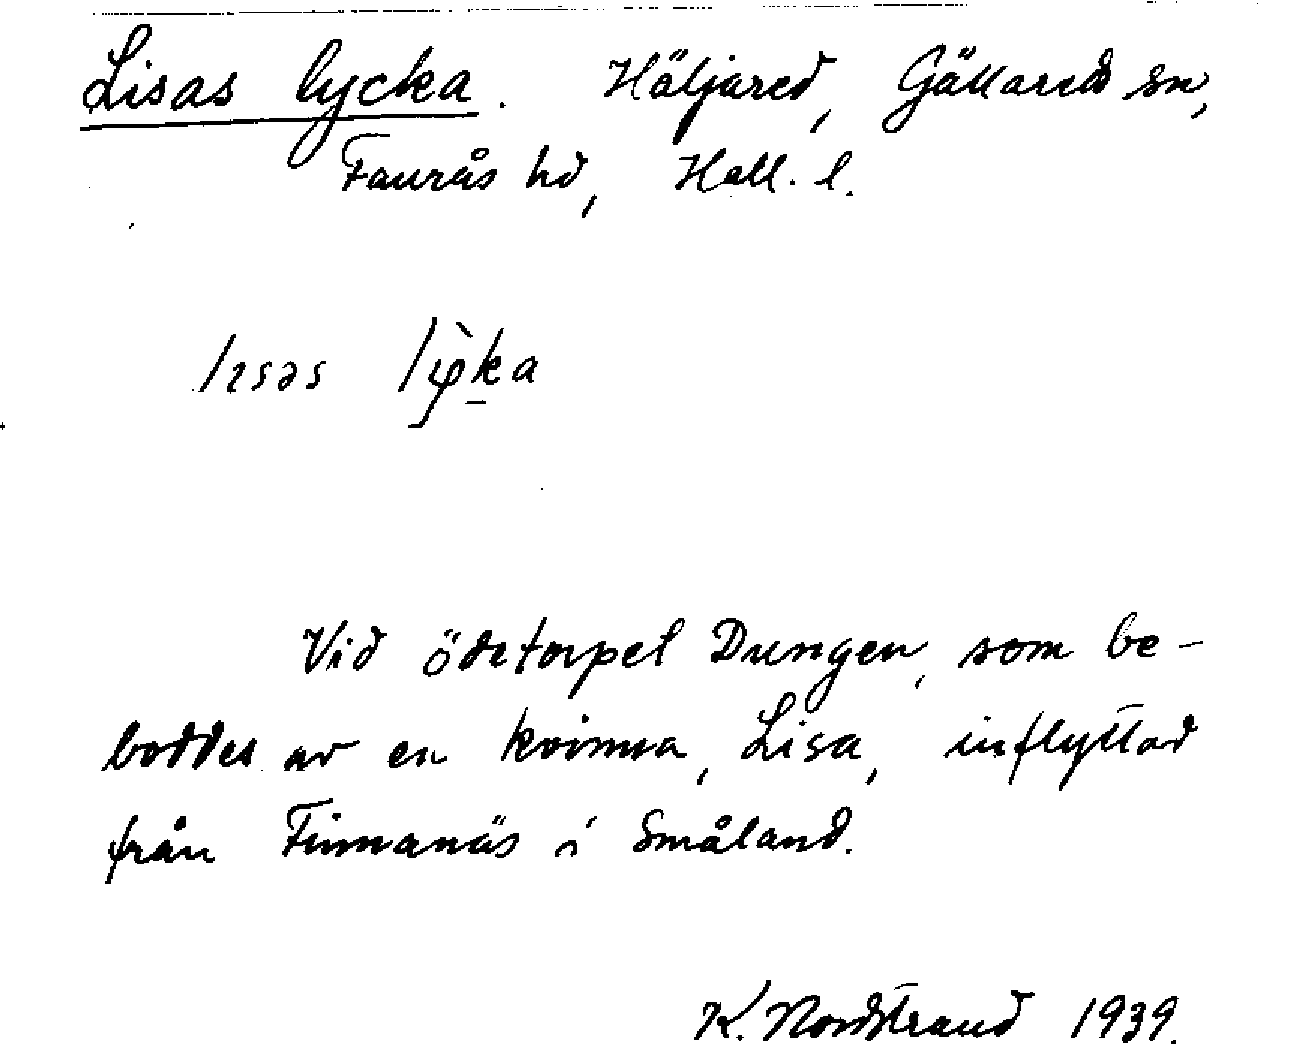 Lisas lycka. Häljared, Gällareds sn,
Faurås hd, Hall. l.
lɪsəs lỳka
Vid ödetorpet Dungen, som be-
boddes av en kvinna, Lisa, inflyttad
från Finnanäs i Småland.
K. Nordstrand 1939.